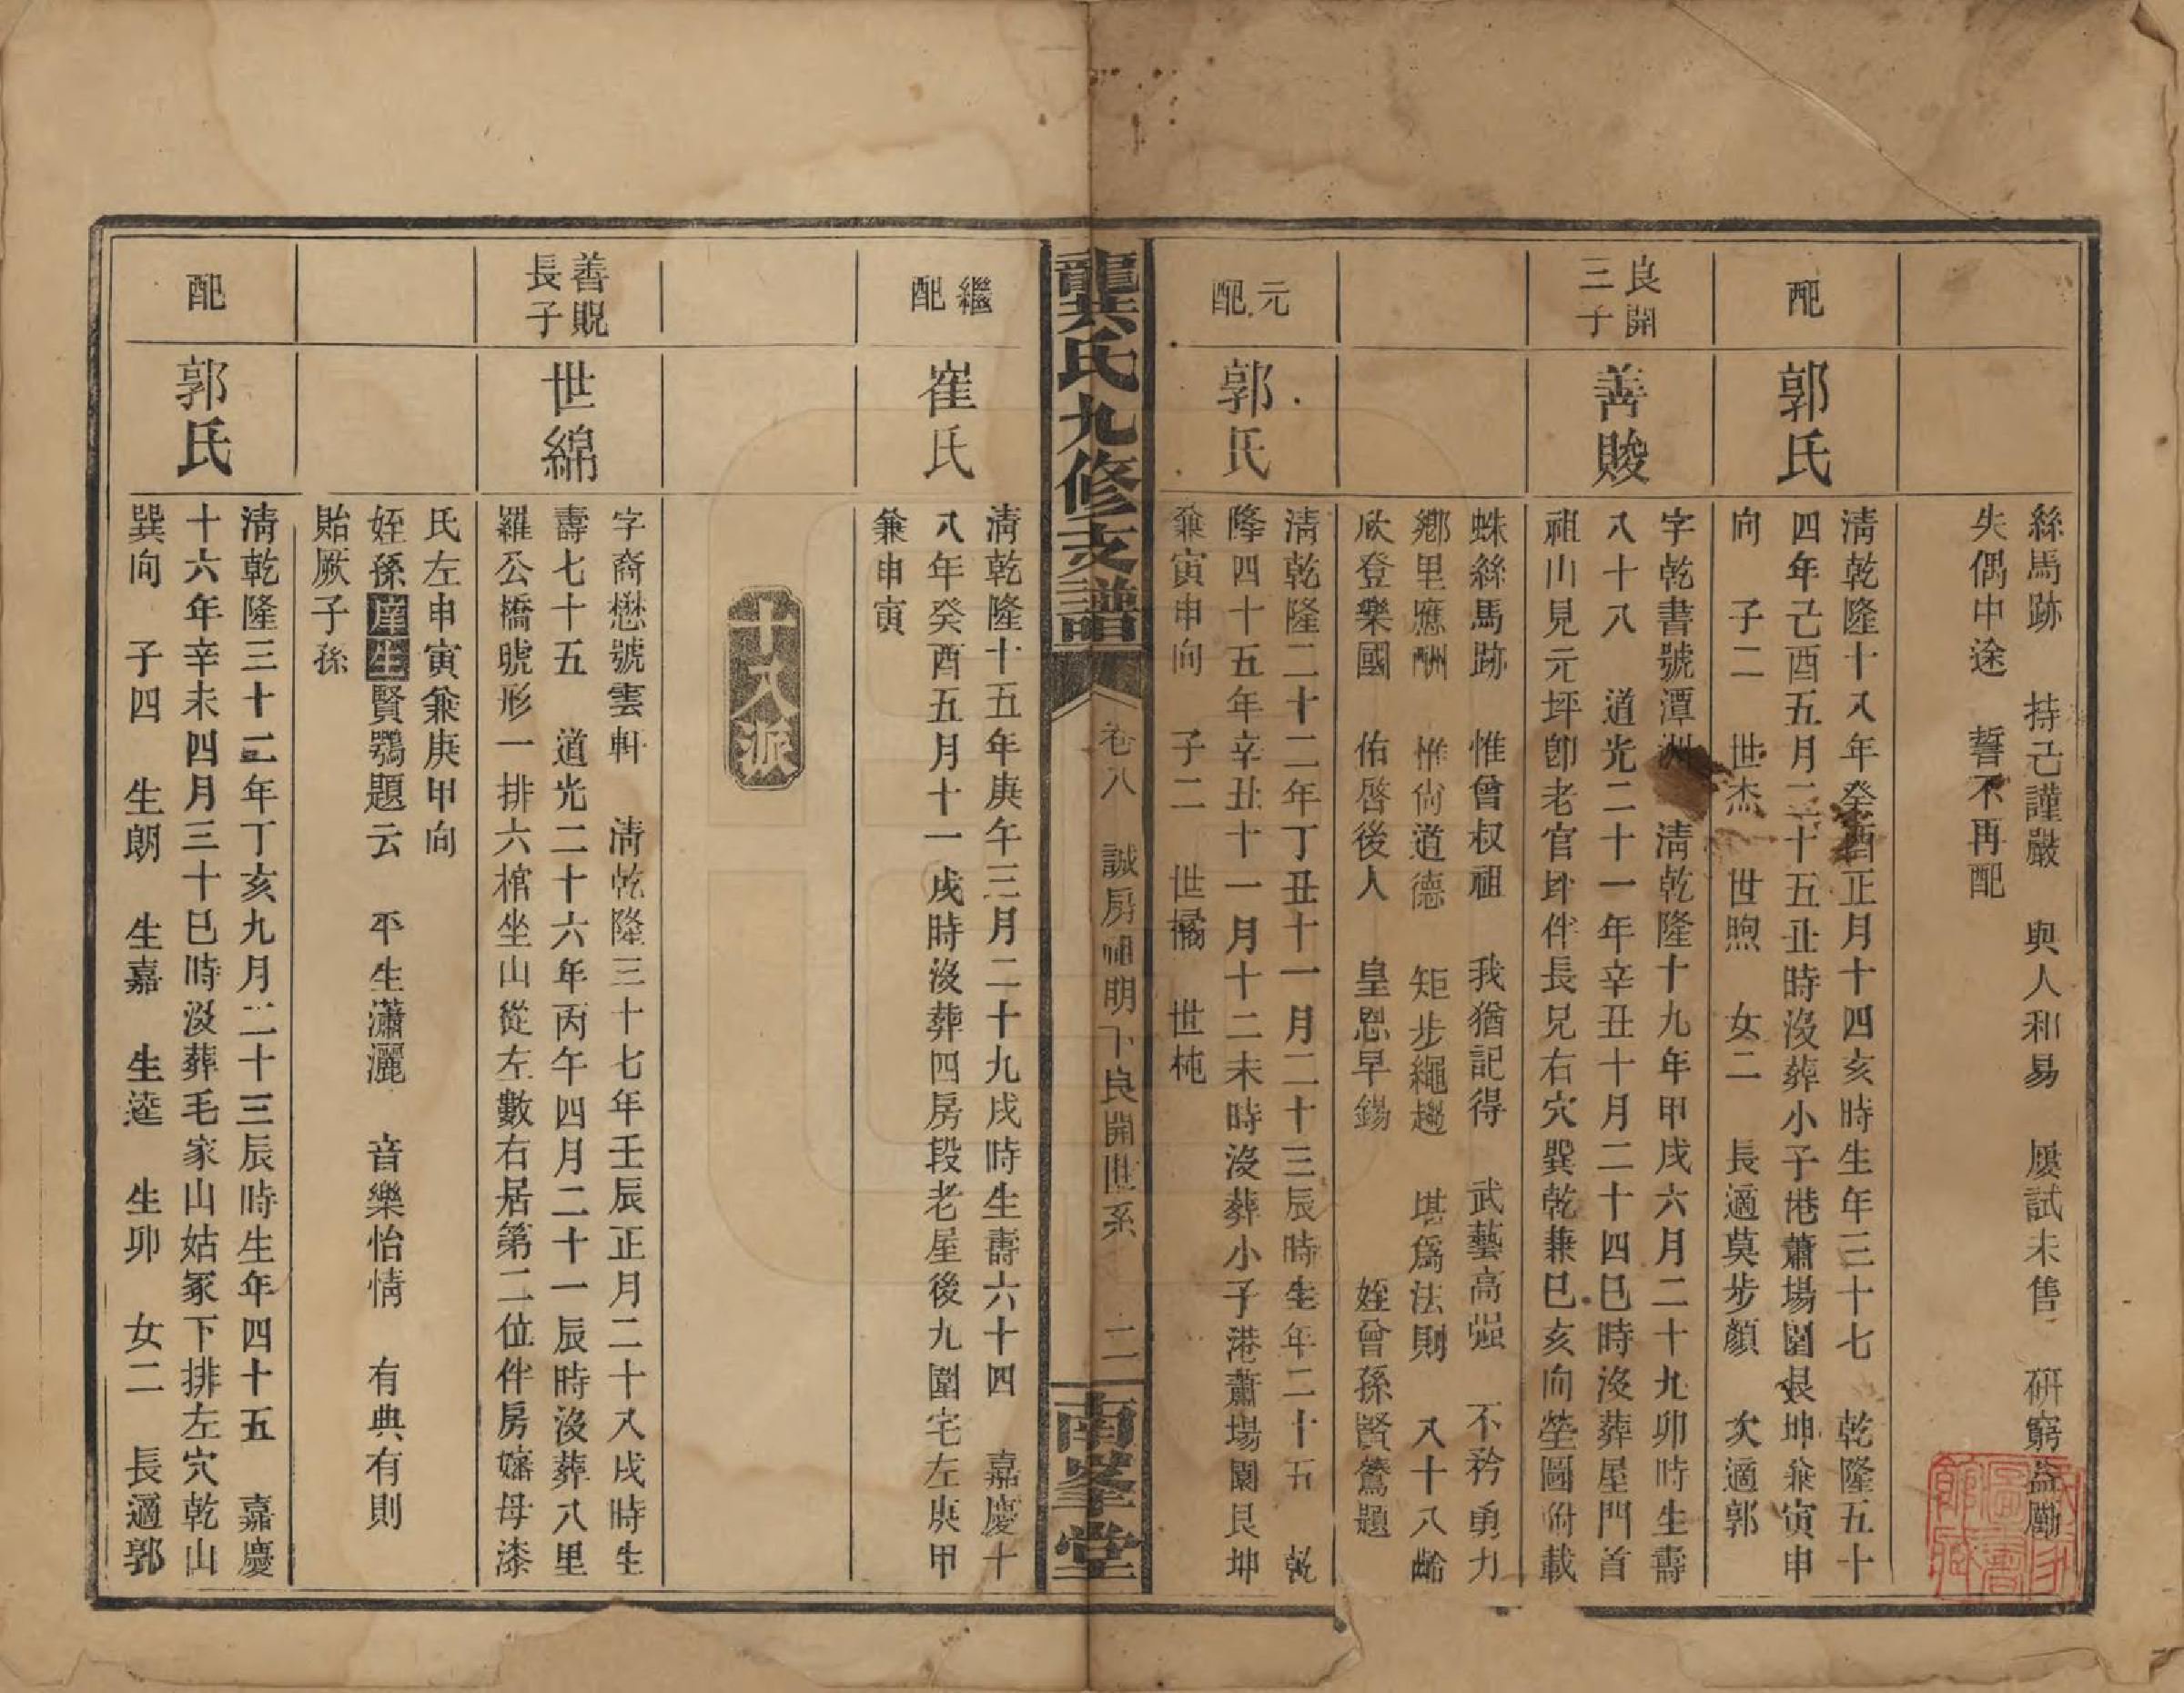 絲馬跡　持己謹嚴　與人和易　屢試未售　研窮益勵
失偶中途　誓不再配
配
郭氏
清乾隆十八年癸酉正月十四亥時生年三十七　乾隆五十
四年己酉五月二十五丑時沒葬小子港蕭場園艮坤兼寅申
向　子二　世杰　世煦　女二　長適莫步顏　次適郭
良開
三子
善賤
字乾書號潭洲　清乾隆十九年甲戌六月二十九卯時生壽
八十八　道光二十一年辛丑十月二十四巳時沒葬屋門首
祖山見元坪卽老官坢伴長兄右穴巽乾兼巳亥向塋圖附載
蛛絲馬跡　惟曾叔祖　我猶記得　武藝高强　不矜勇力
鄉里應酬　惟尙道德　矩步繩趨　堪爲法則　八十八齡
欣登樂國　佑啓後人　皇恩早錫　姪曾孫賢鶯題
元
配
郭氏
清乾隆二十二年丁丑十一月二十三辰時生年二十五　乾
隆四十五年辛丑十一月十二未時沒葬小子港蕭場園艮坤
兼寅申向　子二　世橘　世杶
龍共氏九修支譜
卷八　誠房 明下良開世系　二
南峯堂
繼
配
崔氏
清乾隆十五年庚午三月二十九戌時生壽六十四　嘉慶十
八年癸酉五月十一戌時沒葬四房段老屋後九圍宅左庚甲
兼申寅
十八派
善貺
長子
世綿
字裔懋號雲軒　清乾隆三十七年壬辰正月二十八戌時生
壽七十五　道光二十六年丙午四月二十一辰時沒葬八里
羅公橋虓形一排六棺坐山從左數右居第二位伴房嬸母漆
氏左申寅兼庚甲向
姪孫庠生賢鶚題云　平生瀟灑　音樂怡情　有典有則
貽厥子孫
配
郭氏
清乾隆三十二年丁亥九月二十三辰時生年四十五　嘉慶
十六年辛未四月三十巳時沒葬毛家山姑冢下排左穴乾山
巽向　子四　生朗　生嘉　生逵　生卯　女二　長適郭